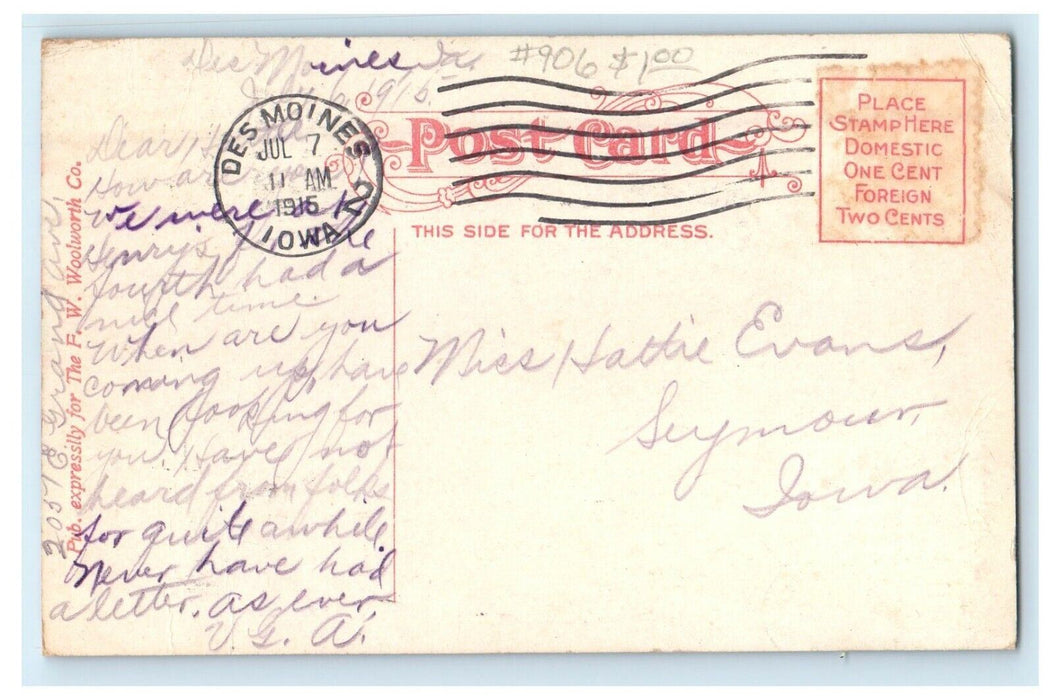 Des Moines, Ia.
July 6, 1915.
#906 $1.00
Dear Hattie
How are you
We were at
Henry's for the
fourth had a
nice time.
When are you
coming up, have
been looking for
you. Have not
heard from folks
for quite awhile
Never have had
a letter. as ever
V. G. A.
2057 E Grand ave.
Pub. expressly for The F. W. Woolworth Co.
DES MOINES
JUL 7
11 AM
1915
IOWA
Post Card
THIS SIDE FOR THE ADDRESS.
PLACE
STAMP HERE
DOMESTIC
ONE CENT
FOREIGN
TWO CENTS
Miss Hattie Evans,
Seymour,
Iowa.